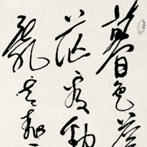 暮色蒼
茫看勁
亂云飛